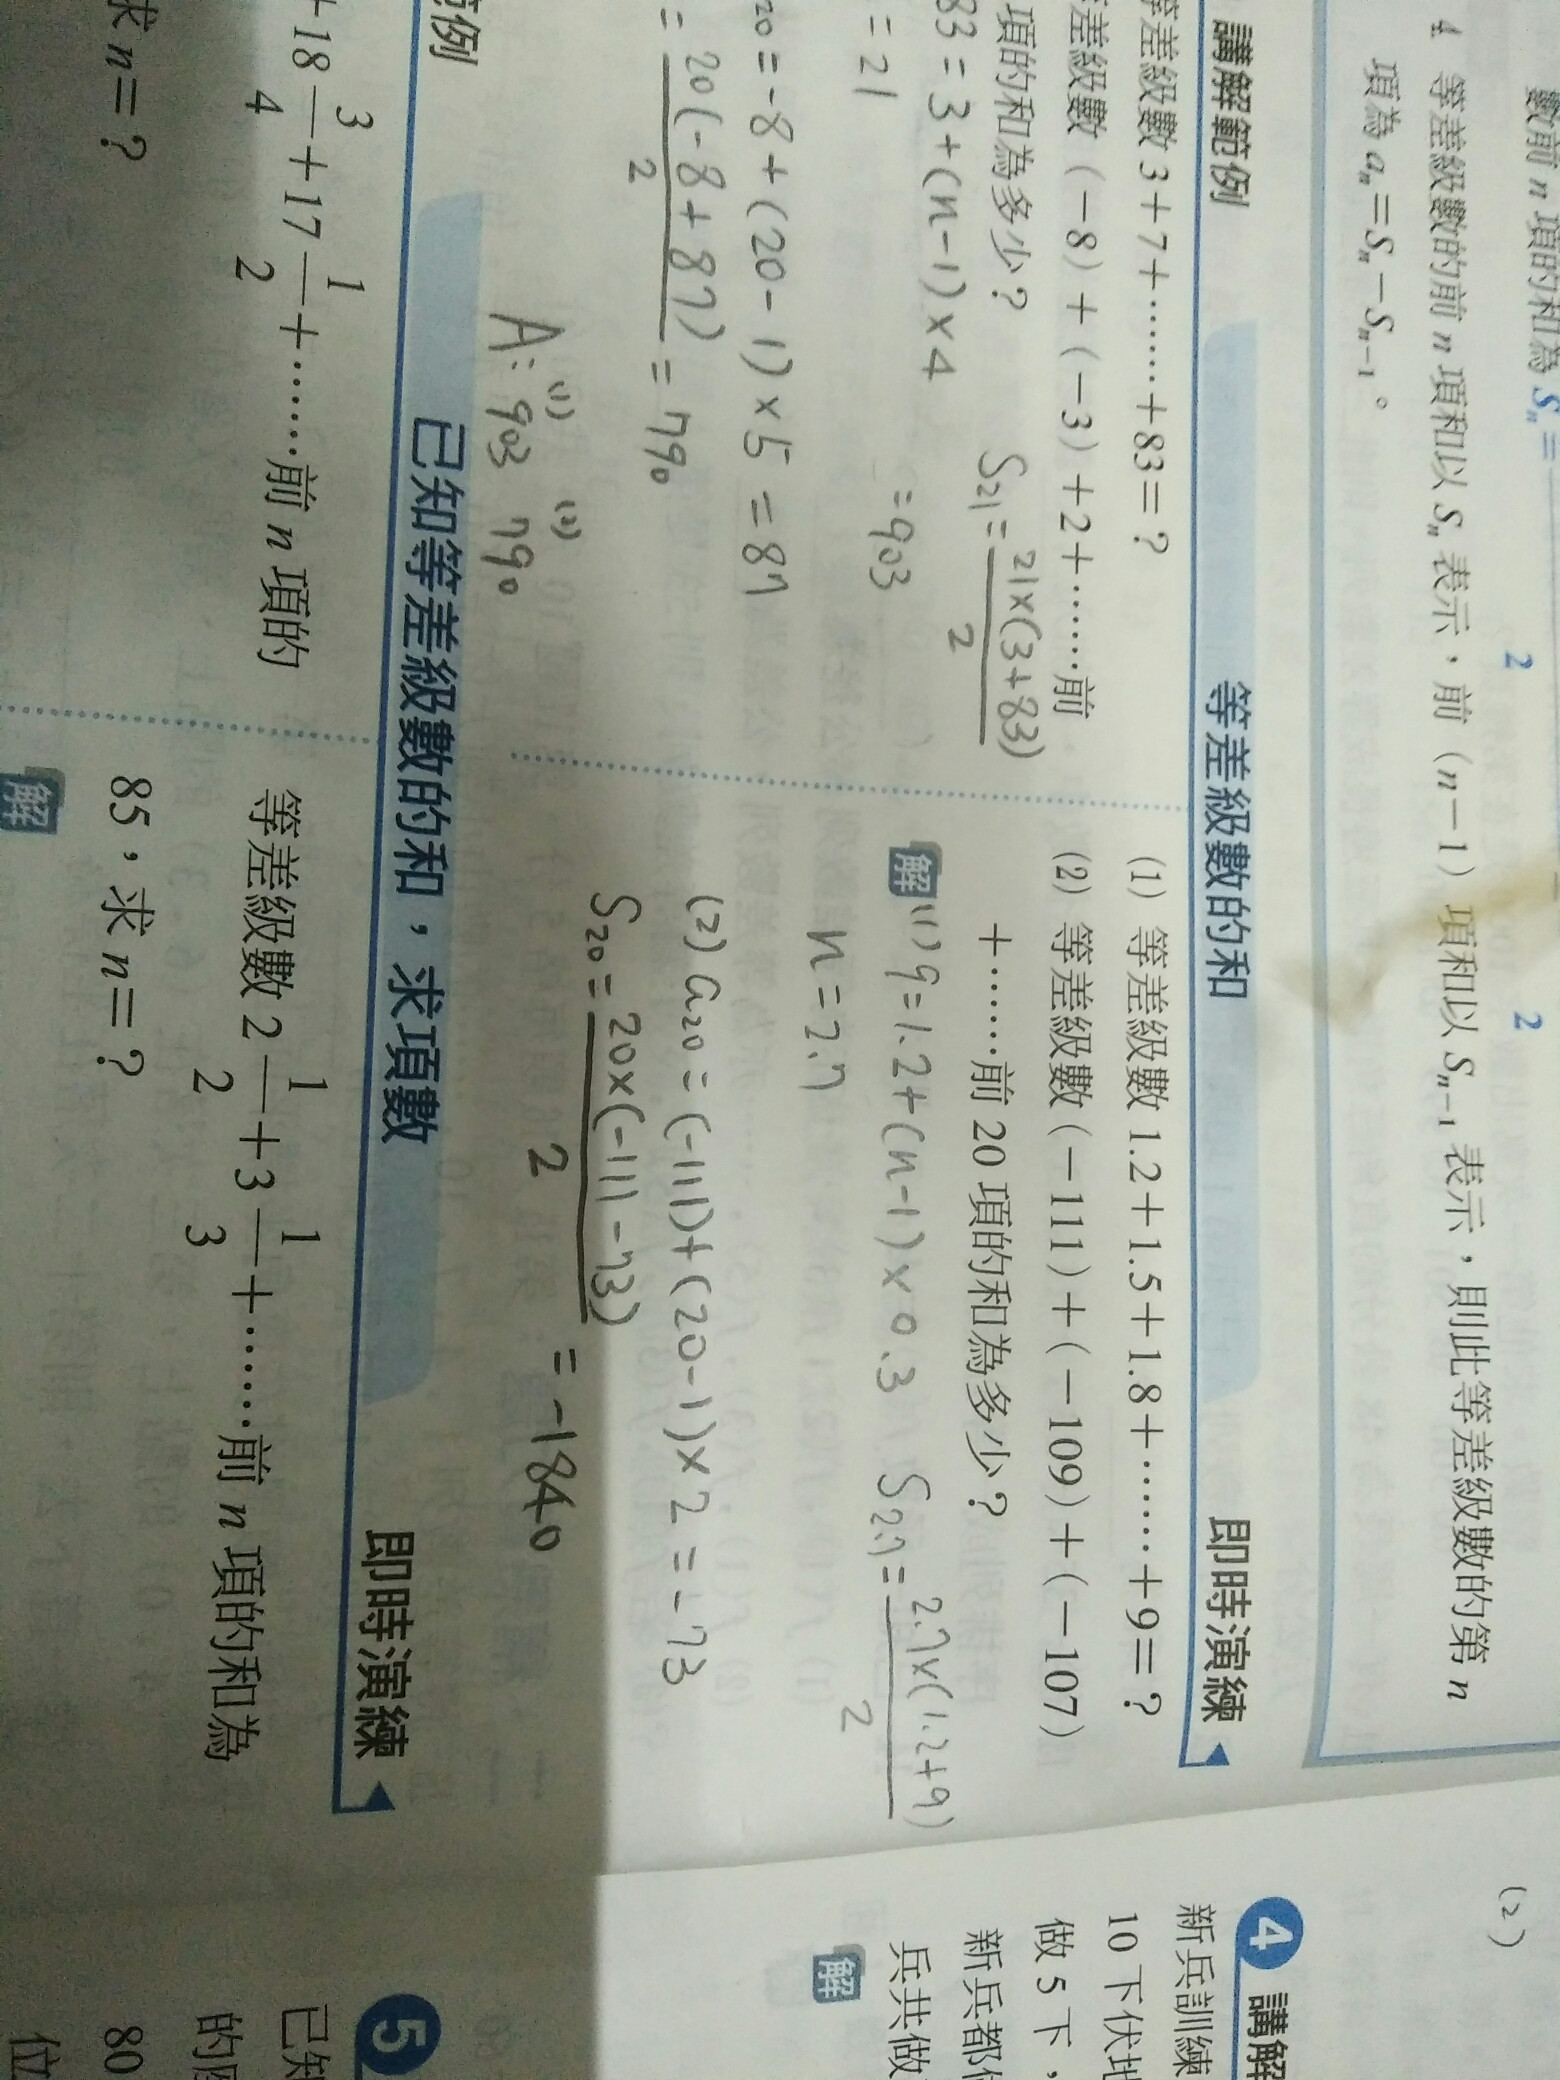 數前 n 項的和為 Sₙ=
2
2
4 等差級數的前 n 項和以 Sₙ 表示，前（n－1）項和以 Sₙ₋₁ 表示，則此等差級數的第 n
項為 aₙ＝Sₙ－Sₙ₋₁。
講解範例
等差級數的和
即時演練
等差級數 3＋7＋……＋83＝？
差級數（－8）＋（－3）＋2＋……前
項的和為多少？
83=3+(n-1)×4
=21
S₂₁=21×(3+83)/2
=903
20=-8+(20-1)×5=87
=20(-8+87)/2=790
A:(1)903 (2)790
(1) 等差級數 1.2＋1.5＋1.8＋……＋9＝？
(2) 等差級數（－111）＋（－109）＋（－107）
＋……前 20 項的和為多少？
解 (1) 9=1.2+(n-1)×0.3
n=2.7
S₂.₇=2.7×(1.2+9)/2
(2) a₂₀=(-111)+(20-1)×2=-73
S₂₀=20×(-111-73)/2
=-1840
範例
已知等差級數的和，求項數
即時演練
+18 3/4＋17 1/2＋……前 n 項的
求 n＝？
等差級數 2 1/2＋3 1/3＋……前 n 項的和為
85，求 n＝？
解
(2)
4 講解
新兵訓練
10 下伏地
做 5 下，
新兵都
兵共做
解
5
已知
的
80
位